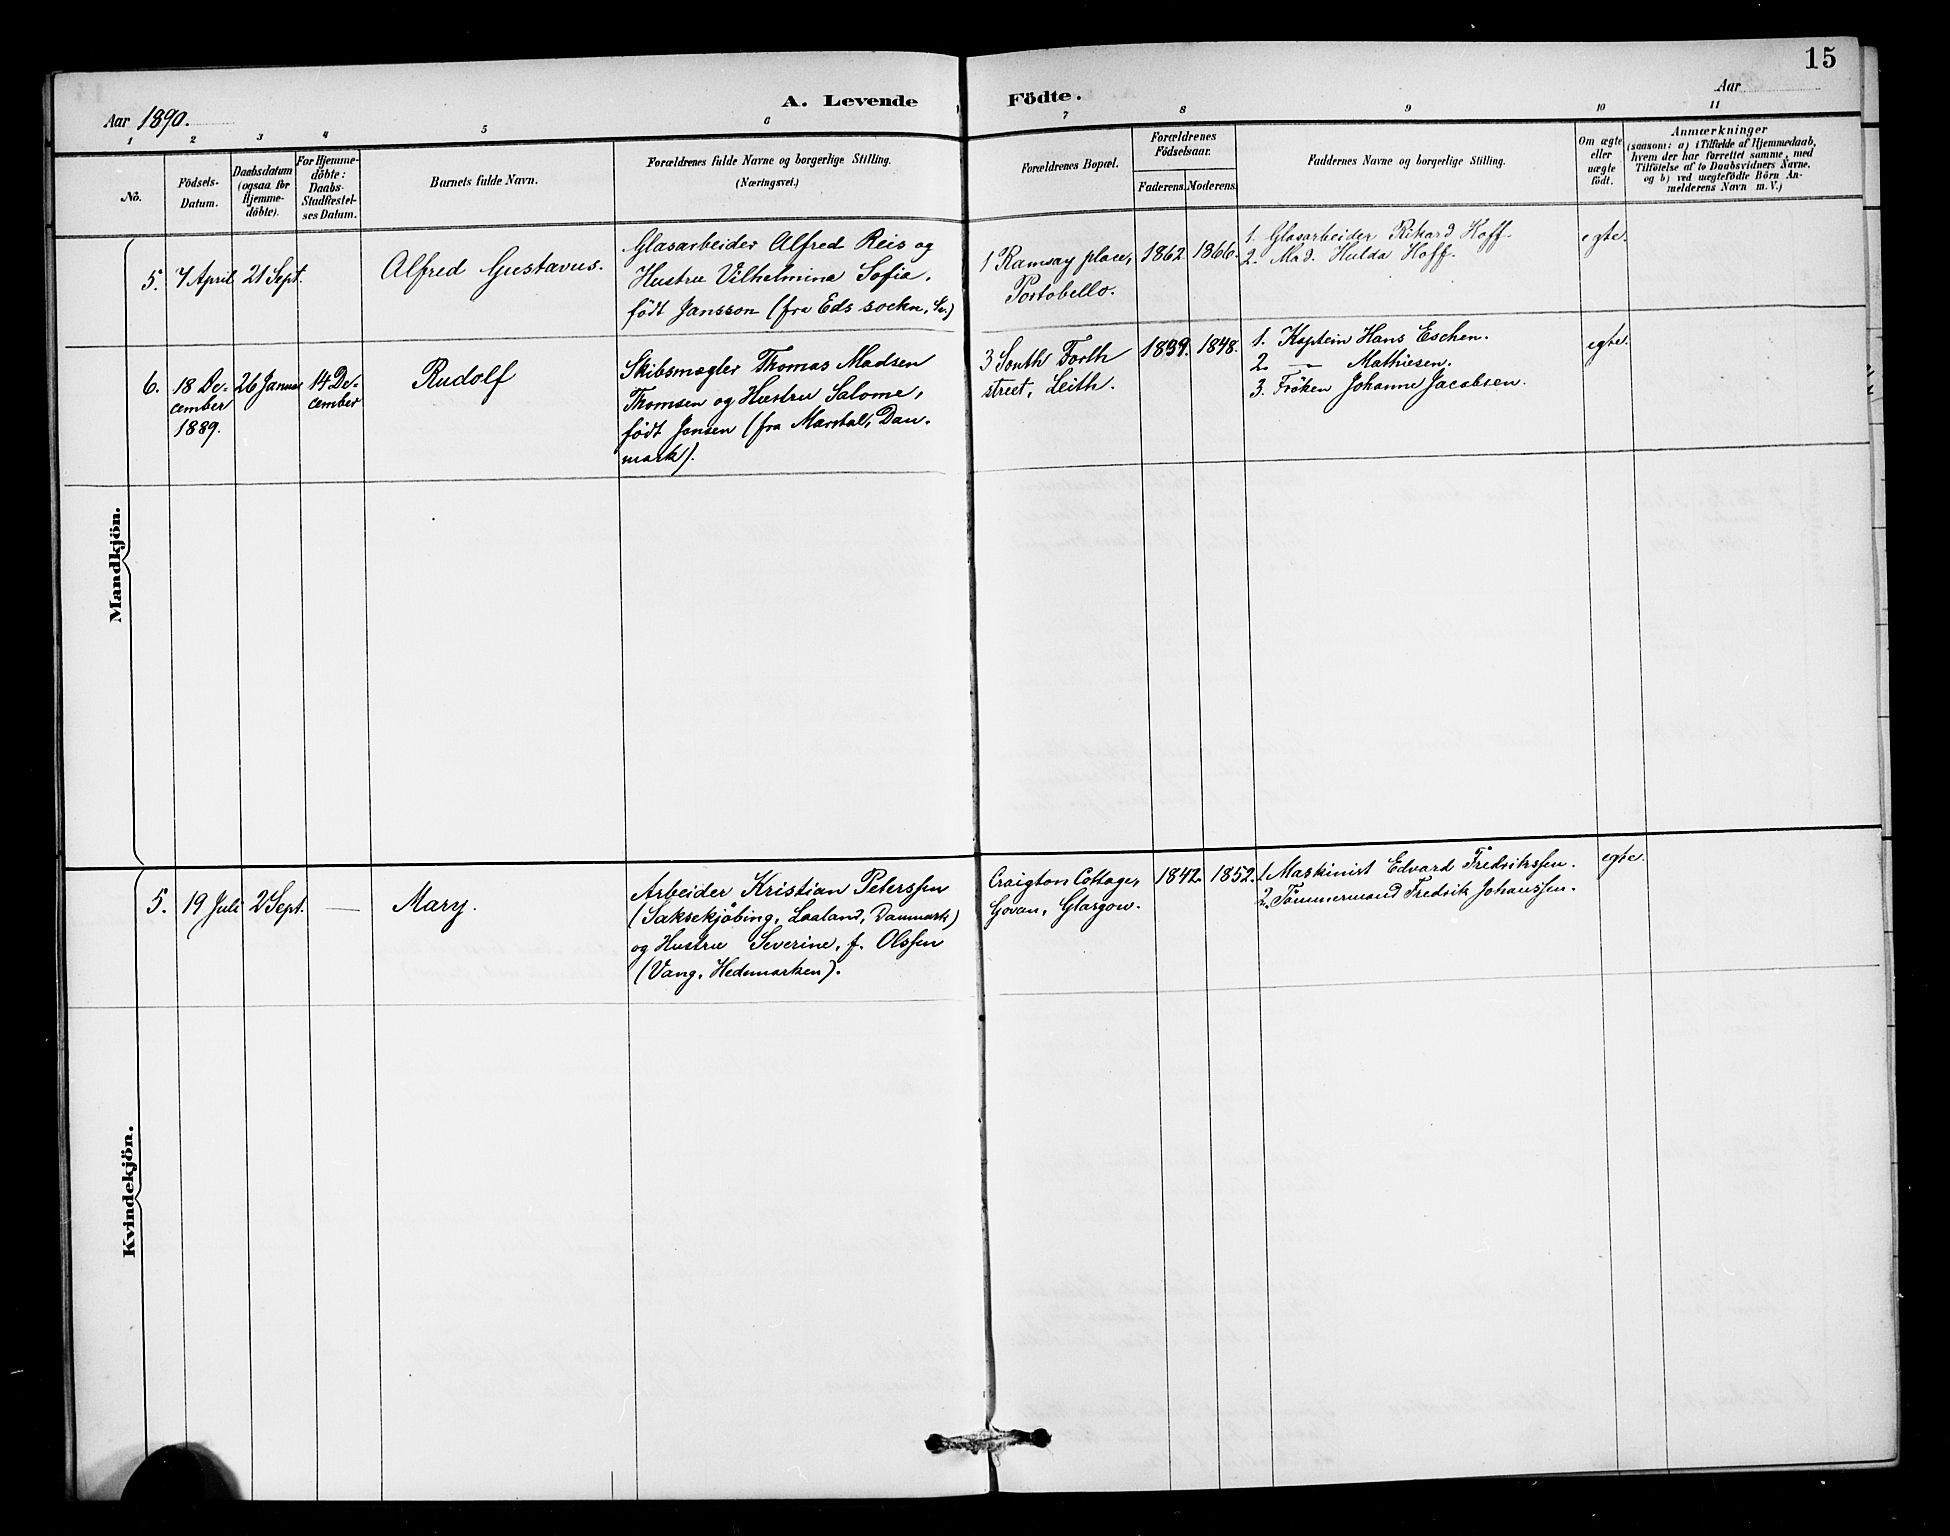 15
A. Levende Födte.
Aar 1890.
Aar
1 2 3 4 5 6 7 8 9 10 11
No.
Födsels-
Datum.
Daabsdatum
(ogsaa for
Hjemme-
döbte).
For Hjemme-
döbte:
Daabs-
Stadfæstel-
ses Datum.
Barnets fulde Navn.
Forældrenes fulde Navne og borgerlige Stilling.
(Næringsvei.)
Forældrenes Bopæl.
Forældrenes
Födselsaar.
Faderens. Moderens.
Faddernes Navne og borgerlige Stilling.
Om ægte
eller
uægte
födt.
Anmærkninger
(saasom: a) i Tilfælde af Hjemmedaab,
hvem der har forrettet samme, med
Tilföielse af to Daabsvidners Navne,
og b) ved uægtefödte Börn An-
melderens Navn m. V.)
Mandkjön.
5. 7 April 21 Sept. Alfred Gustavus.
Glasarbeider Alfred Reis og
Hustru Vilhelmina Sofia,
født Jansson (fra Eds sockn, Sv.)
1 Ramsay place,
Portobello.
1862. 1866.
1. Glasarbeider Rikard Hoff.
2. Mad. Hulda Hoff.
egte.
6. 18 De-
cember
1889.
26 Januar
14 De-
cember
Rudolf
Skibsmægler Thomas Madsen
Thomsen og Hustru Salome,
født Jensen (fra Marstal, Dan-
mark).
3 South Forth
street, Leith.
1839. 1848.
1. Kaptein Hans Eschen.
2. — Mathiesen.
3. Frøken Johanne Jacobsen.
egte.
Kvindekjön.
5. 19 Juli 2 Sept. — Mary.
Arbeider Kristian Peterssen
(Saksekjøbing, Laaland, Danmark)
og Hustru Severine, f. Olssen
(Vang, Hedemarken).
Craigton Cottage,
Govan, Glasgow.
1842. 1852.
1. Maskinist Edvard Fredrikssen.
2. Tømmermand Fredrik Johanssen.
egte.